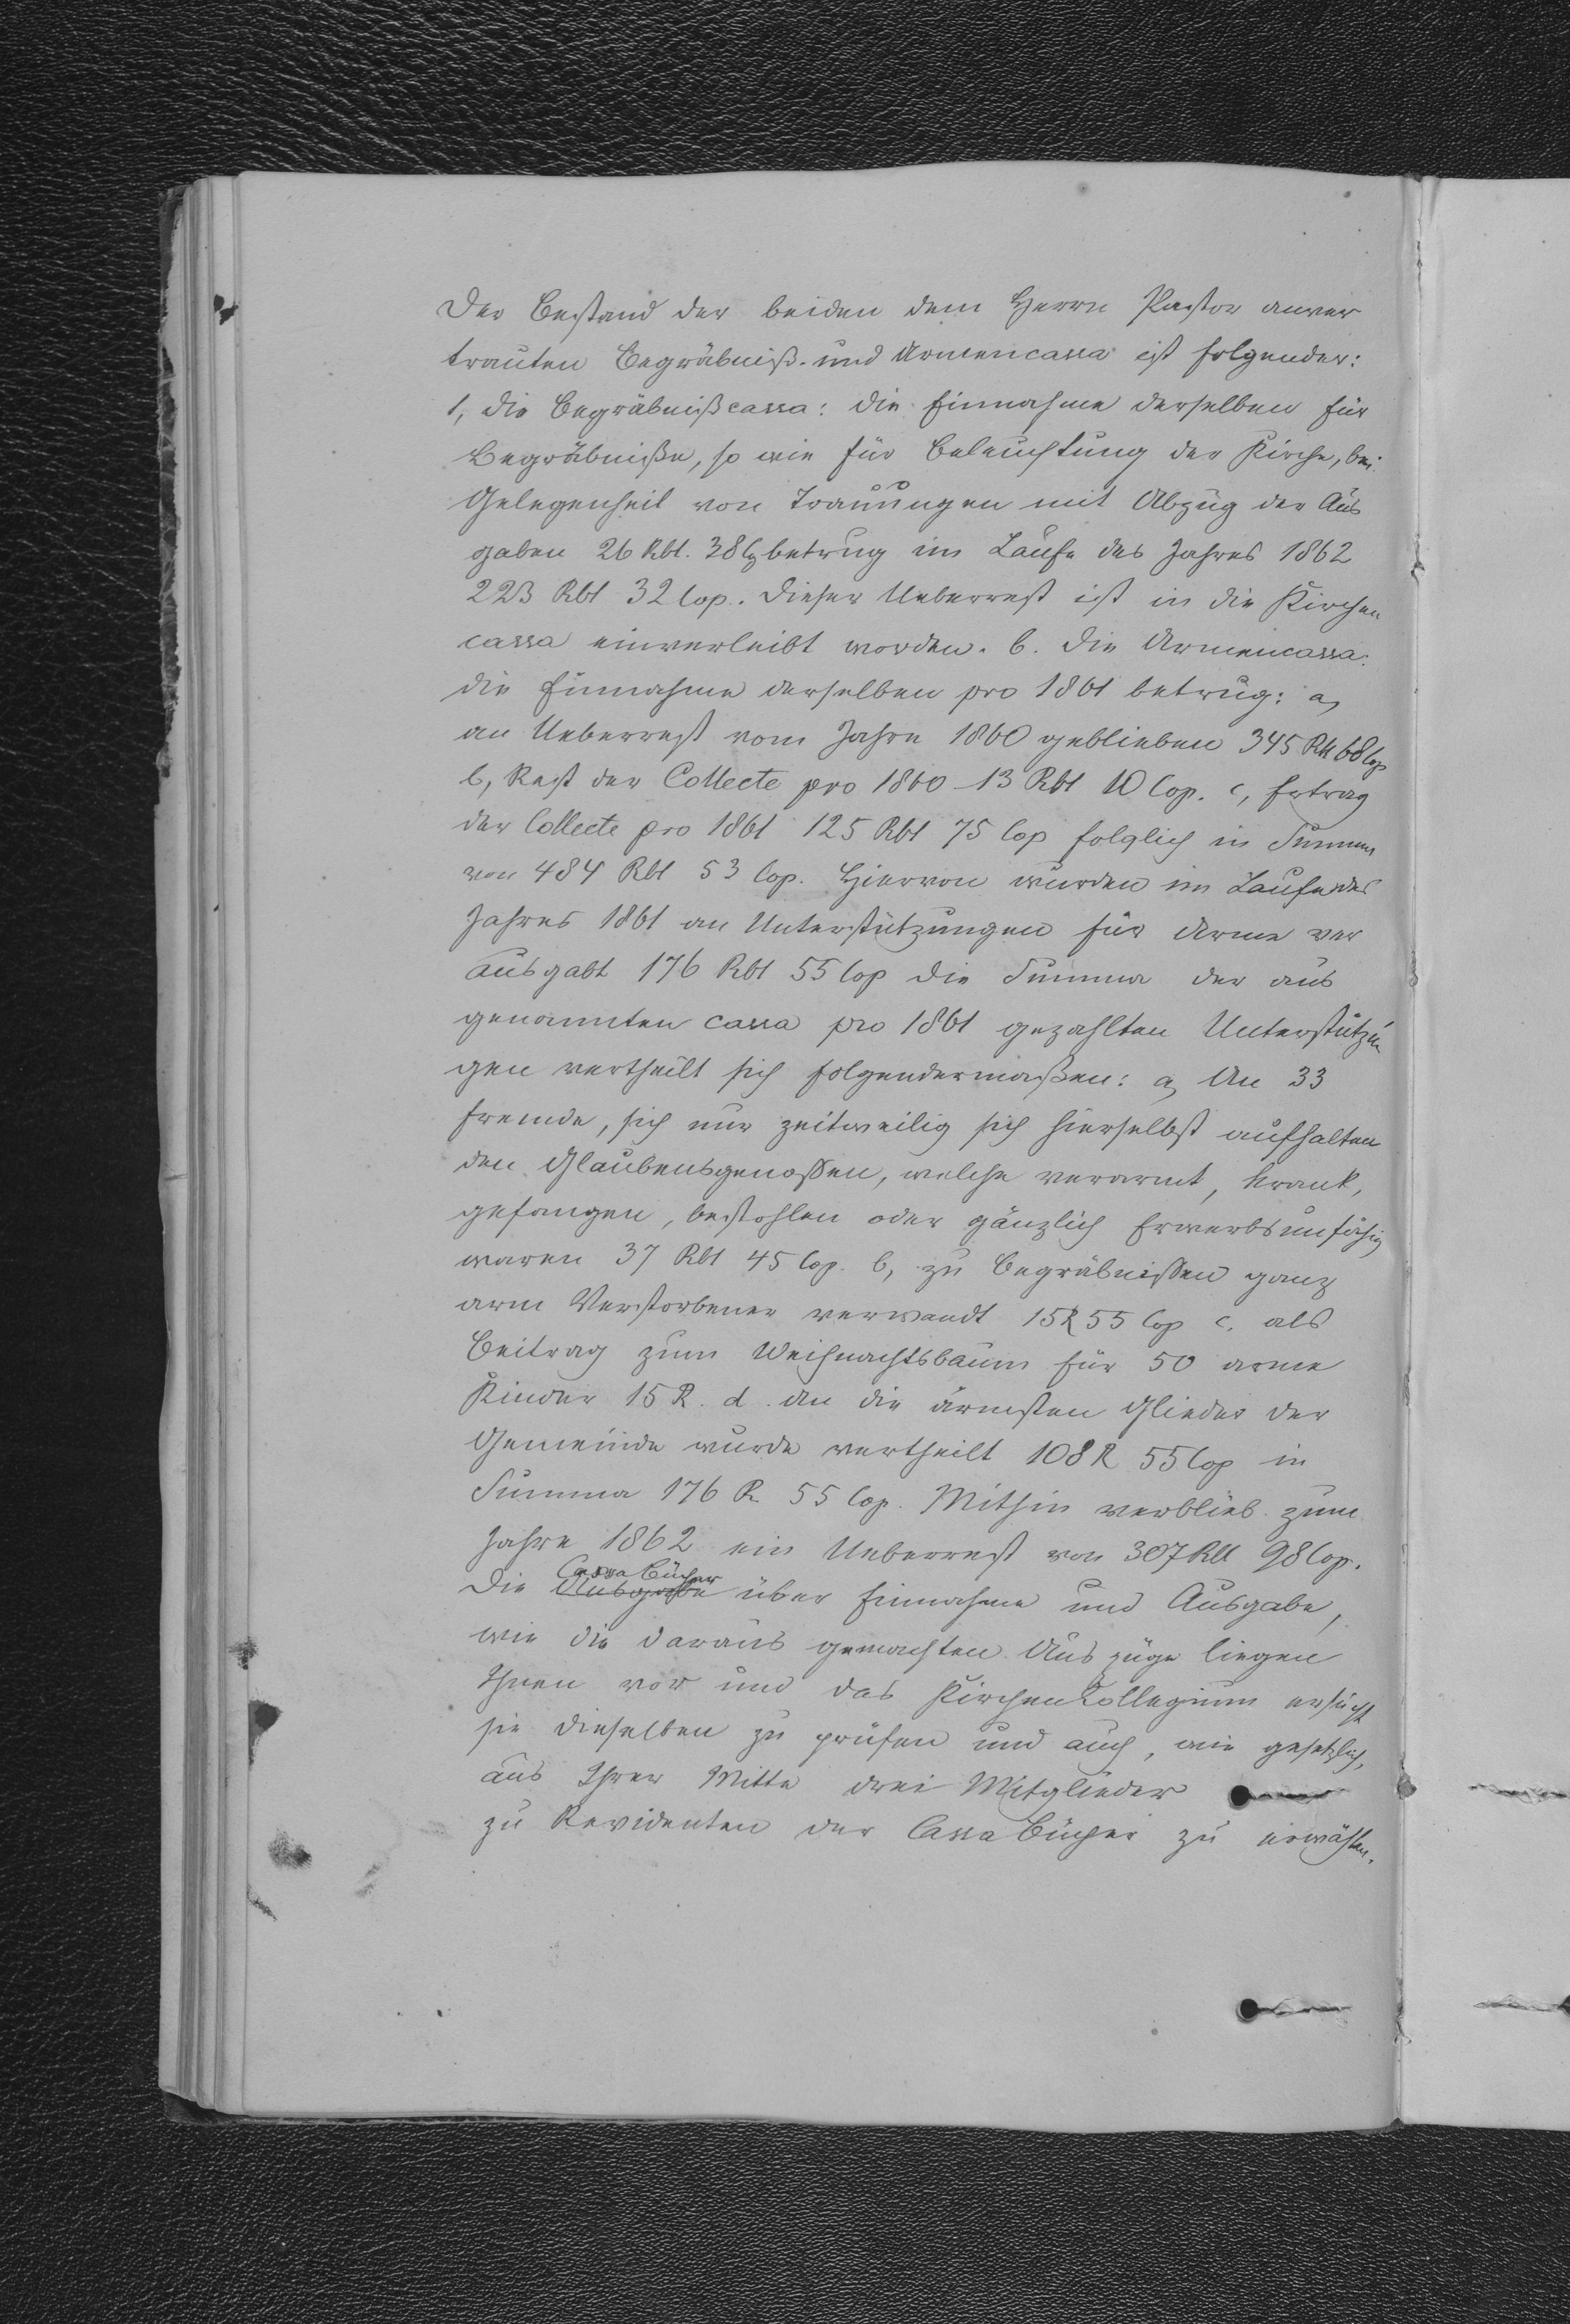 Der Bestand der beiden dem Herrn Pastor anver
trauten Begräbniß- und Armencassa ist folgender:
1, die Begräbnißcassa: die Einnahme derselben für
Begräbniße, so wie für Beleuchtung der Kirche, bei
Gelegenheit von Trauungen mit Abzug der Aus
gaben 26 Rbl. 38 Cp betrug im Laufe des Jahres 1862
223 Rbl 32 Cop. Dieser Ueberrest ist in die Kirchen
cassa einverleibt worden. b. Die Armencassa:
die Einnahme derselben pro 1861 betrug: a,
an Ueberrest vom Jahre 1860 geblieben 345 Rbl 68 Cop
b, Rest der Collecte pro 1860 - 13 Rbl 10 Cop. c, Ertrag
der Collecte pro 1861 125 Rbl 75 Cop folglich in Summa
von 484 Rbl 53 Cop. Hiervon wurden im Laufe des
Jahres 1861 an Unterstützungen für Arme ver
ausgabt 176 Rbl 55 Cop die Summa der aus
genannten Cassa pro 1861 gezahlten Unterstützun
gen vertheilt sich folgendermaßen: a, An 33
fremde, sich nur zeitweilig sich hierselbst aufhalten
den Glaubensgenossen, welche verarmt, krank,
gefangen, bestohlen oder gänzlich Erwerbsunfähig
waren 37 Rbl 45 Cop. b, zu Begräbnissen ganz
arm Verstorbener verwandt 15 R 55 Cop c. als
Beitrag zum Weihnachtsbaum für 50 arme
Kinder 15 R. d. An die ärmsten Glieder der
Gemeinde wurde vertheilt 108 R 55 Cop in
Summa 176 R 55 Cop. Mithin verblieb zum
Jahre 1862 ein Ueberrest von 307 Rbl 98 Cop.
Cassa Bücher
Die Ausgabe über Einnahme und Ausgabe,
wie die daraus gemachten Auszüge liegen
Ihnen vor und das Kirchen Collegium ersucht
sie dieselben zu prüfen und auch, wie gesetzlich,
aus Ihrer Mitte drei Mitglieder
zu Revidenten der Cassa Bücher zu erwählen.